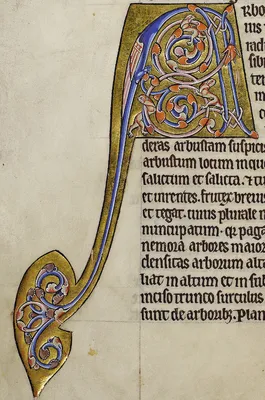 Arbo
ius
radi
sibi
ter
m
c
deras arbustam suspici
arbustum locum inquo
salictum et salicta. & tu
et uirentes. frutex breuis
et tegat. cuius plurale n
nuncupatum. qͥ paga
nemora arbores maiores
densitas arborum alta
liat in altum et in sub
inciso trunco surculus
sunt de arboribꝫ. Plan